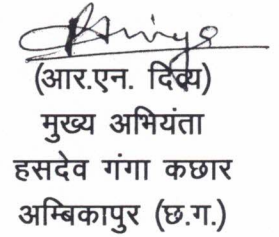 (आर.एन. दिव्य)
मुख्य अभियंता
हसदेव गंगा कछार
अम्बिकापुर (छ.ग.)